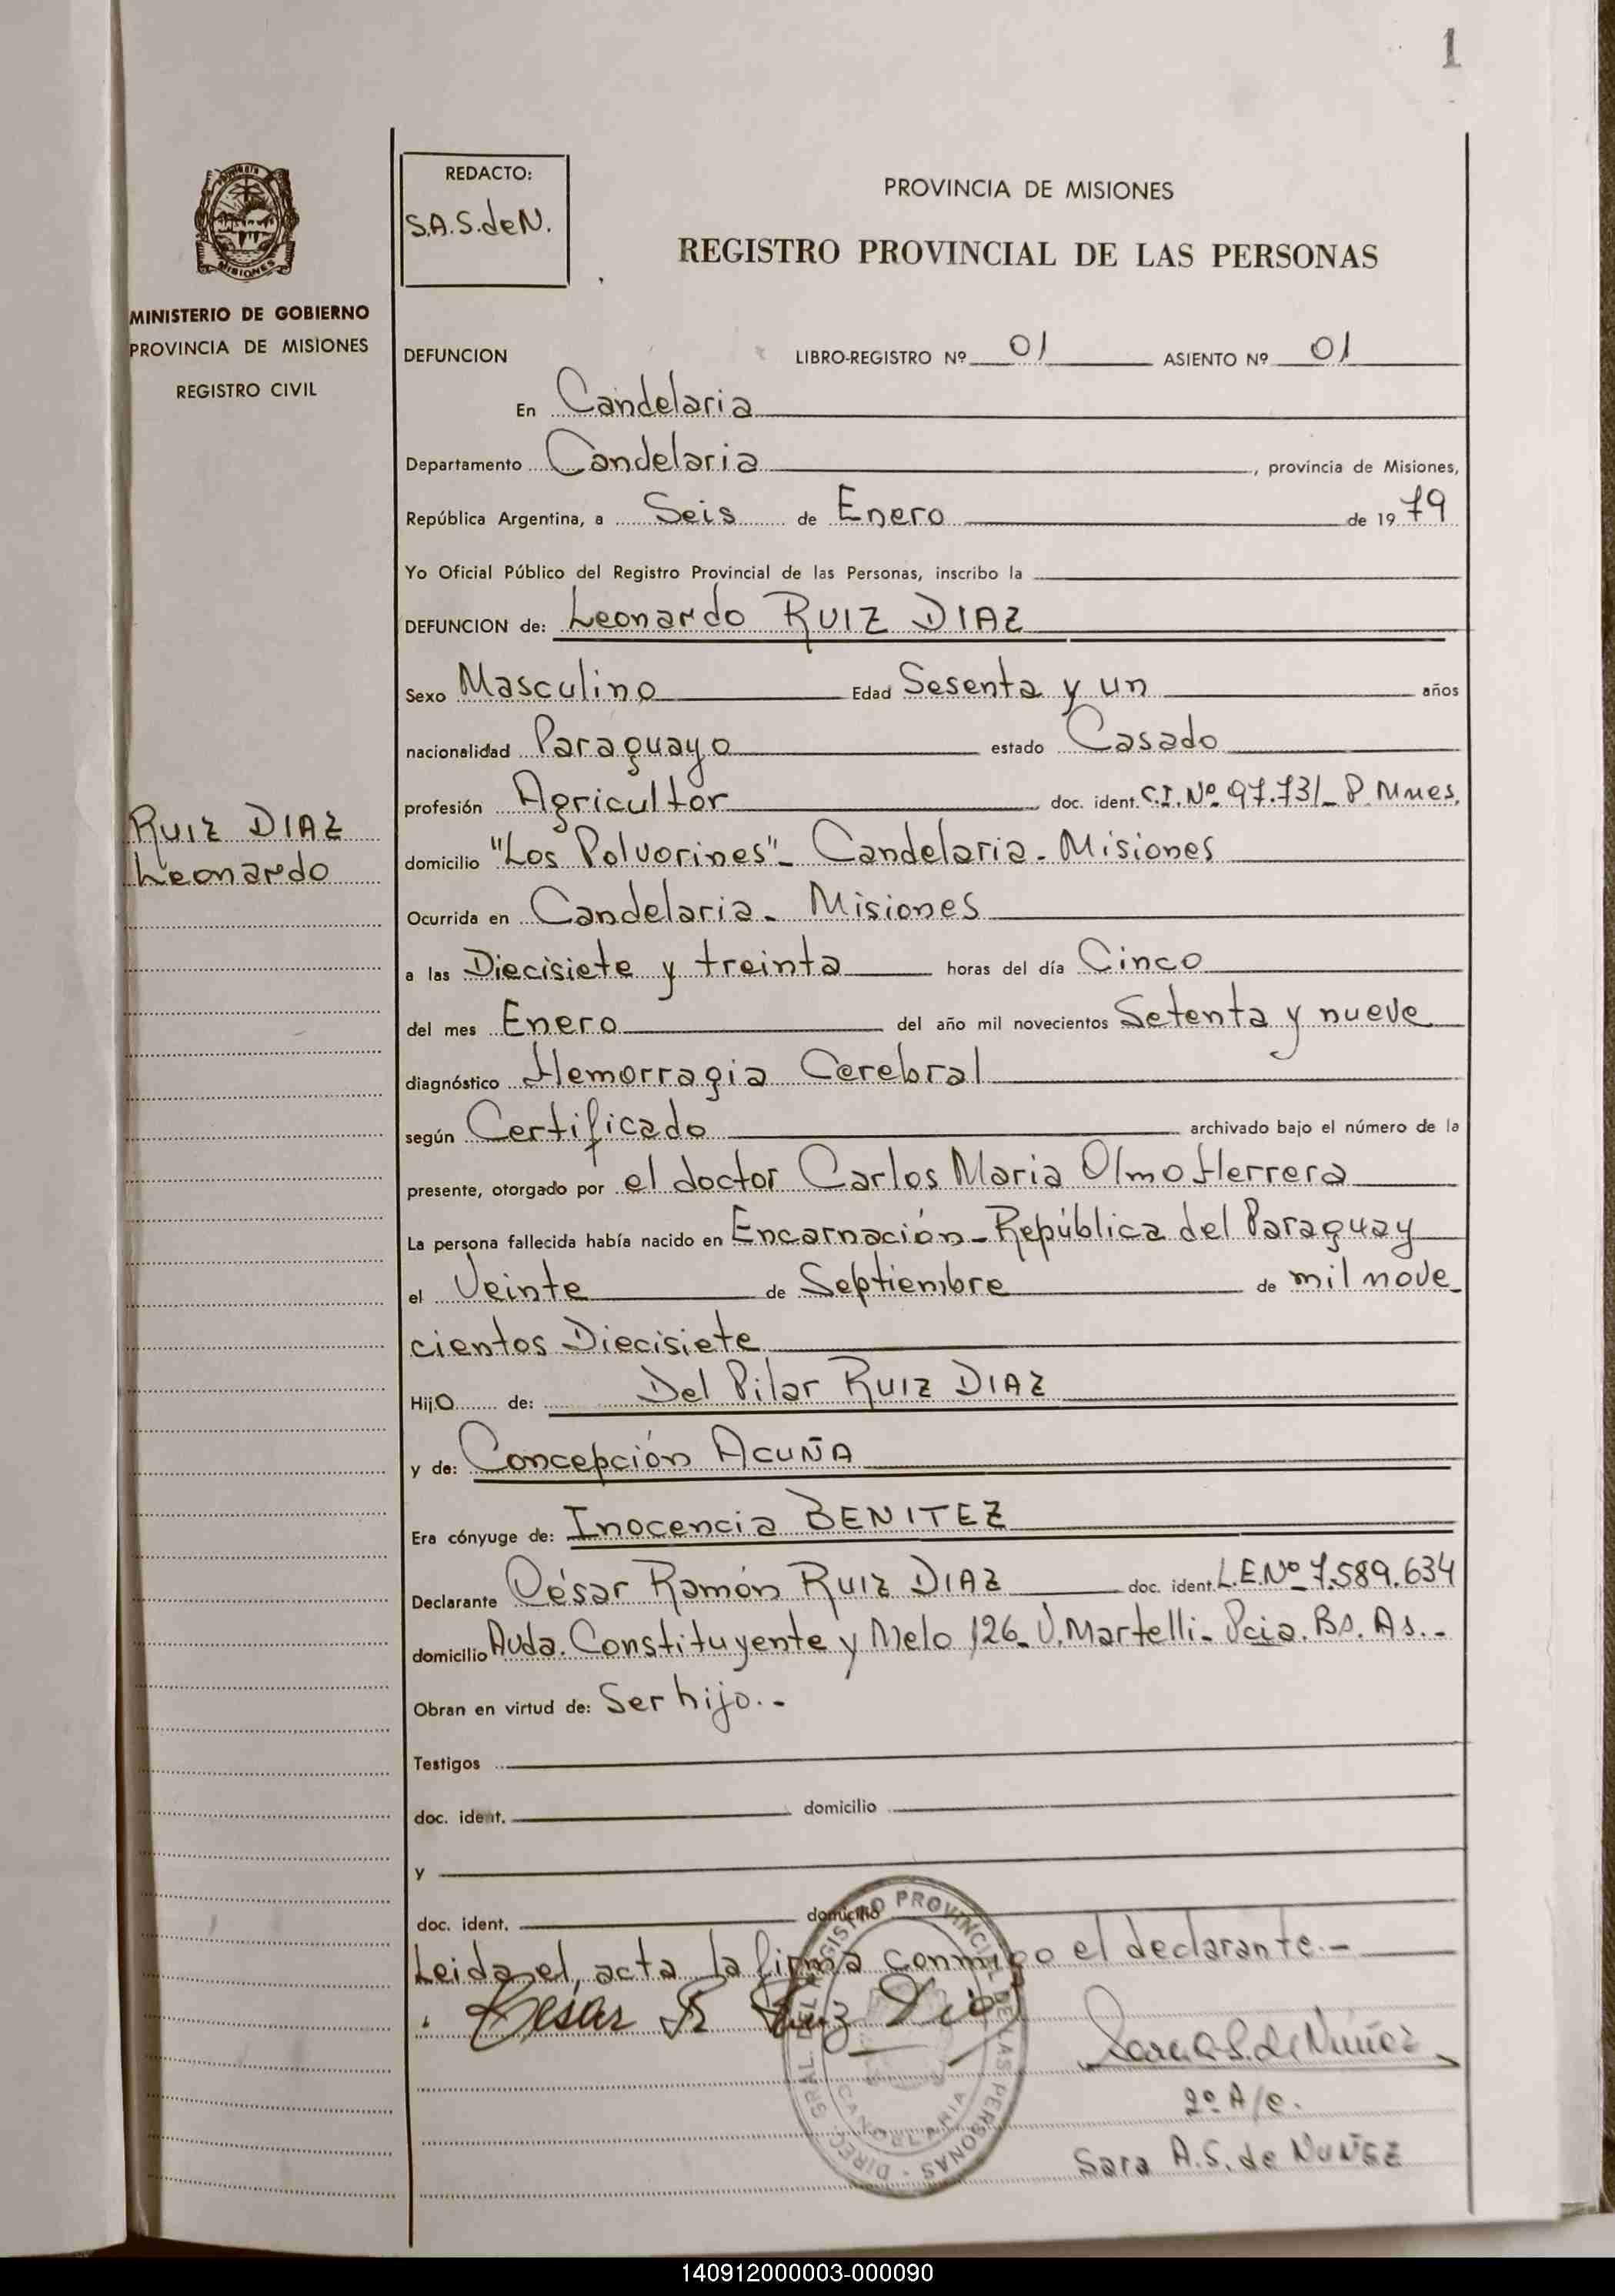 1
REDACTO:
S.A.S.deN.
PROVINCIA DE MISIONES
REGISTRO PROVINCIAL DE LAS PERSONAS
MISIONES
MINISTERIO DE GOBIERNO
PROVINCIA DE MISIONES
REGISTRO CIVIL
RUIZ DIAZ
Leonardo
DEFUNCION LIBRO-REGISTRO Nº 01 ASIENTO Nº 01
En Candelaria
Departamento Candelaria, provincia de Misiones,
República Argentina, a Seis de Enero de 1979
Yo Oficial Público del Registro Provincial de las Personas, inscribo la
DEFUNCION de: Leonardo RUIZ DIAZ
Sexo Masculino Edad Sesenta y un años
nacionalidad Paraguayo estado Casado
profesión Agricultor doc. ident. C.I. Nº 97.731_ P. Mnes.
domicilio "Los Polvorines"_ Candelaria_ Misiones
Ocurrida en Candelaria_ Misiones
a las Diecisiete y treinta horas del día Cinco
del mes Enero del año mil novecientos Setenta y nueve
diagnóstico Hemorragia Cerebral
según Certificado archivado bajo el número de la
presente, otorgado por el doctor Carlos Maria Olmo Herrera
La persona fallecida había nacido en Encarnación_ República del Paraguay
el Veinte de Septiembre de mil nove_
cientos Diecisiete
Hijo de: Del Pilar RUIZ DIAZ
y de: Concepción ACUÑA
Era cónyuge de: Inocencia BENITEZ
Declarante César Ramón RUIZ DIAZ doc. ident. L.E.Nº 7.589.634
domicilio Avda. Constituyente y Melo 126_ V. Martelli_ Pcia. Bs. As..-
Obran en virtud de: Ser hijo..-
Testigos
doc. ident. domicilio
y
doc. ident. domicilio
Leida el acta la firma conmigo el declarante.-
César R Ruiz Dia
Sara A. S. de Nuñez
2º A/c.
Sara A.S. de NUÑEZ
DIREC. GRAL. DEL REGISTRO PROVINCIAL DE LAS PERSONAS
CANDELARIA
140912000003-000090